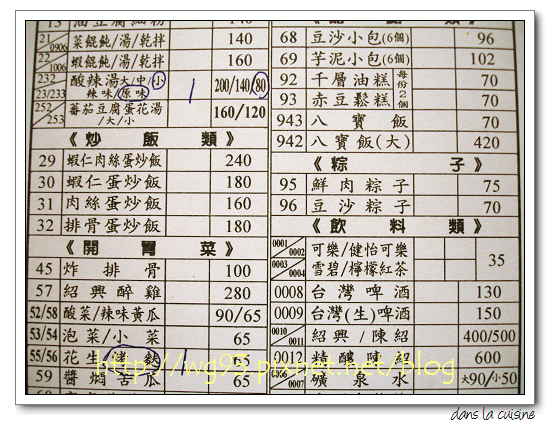 15 油豆腐細粉 140
21/0906 菜餛飩/湯/乾拌 140
22/1006 蝦餛飩/湯/乾拌 160
232 酸辣湯大/中/小
23/233 辣味/原味 1 200/140/80
252/253 蕃茄豆腐蛋花湯/大/小 160/120
《炒飯類》
29 蝦仁肉絲蛋炒飯 240
30 蝦仁蛋炒飯 180
31 肉絲蛋炒飯 160
32 排骨蛋炒飯 180
《開胃菜》
45 炸排骨 100
57 紹興醉雞 280
52/58 酸菜/辣味黃瓜 90/65
53/54 泡菜/小菜 65
55/56 花生/烤麩 1 65
59 醬燜苦瓜 65
68 豆沙小包(6個) 96
69 芋泥小包(6個) 102
92 千層油糕 每份2個 70
93 赤豆鬆糕 70
943 八寶飯 70
942 八寶飯(大) 420
《粽子》
95 鮮肉粽子 75
96 豆沙粽子 70
《飲料類》
0001/0002 可樂/健怡可樂
0003/0004 雪碧/檸檬紅茶 35
0008 台灣啤酒 130
0009 台灣(生)啤酒 150
0010/0011 紹興/陳紹 400/500
0012 精釀陳紹 600
0306/0007 礦泉水 大90/小50
http://wg99.pixnet.net/blog
dans la cuisine